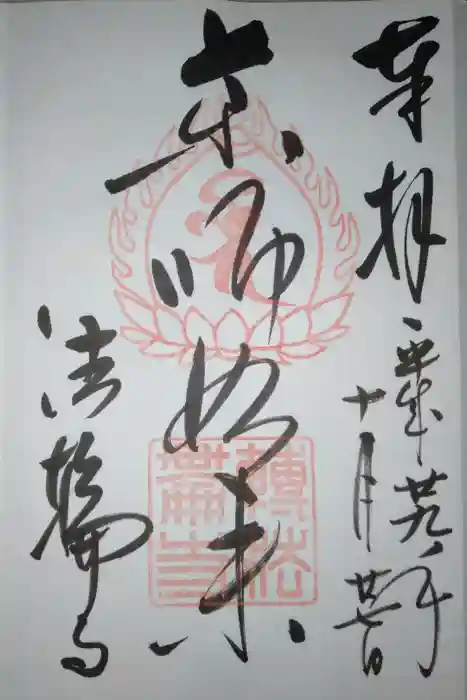 奉拝
平成廿九年
十月廿七日
薬師如来
法輪寺
轉法